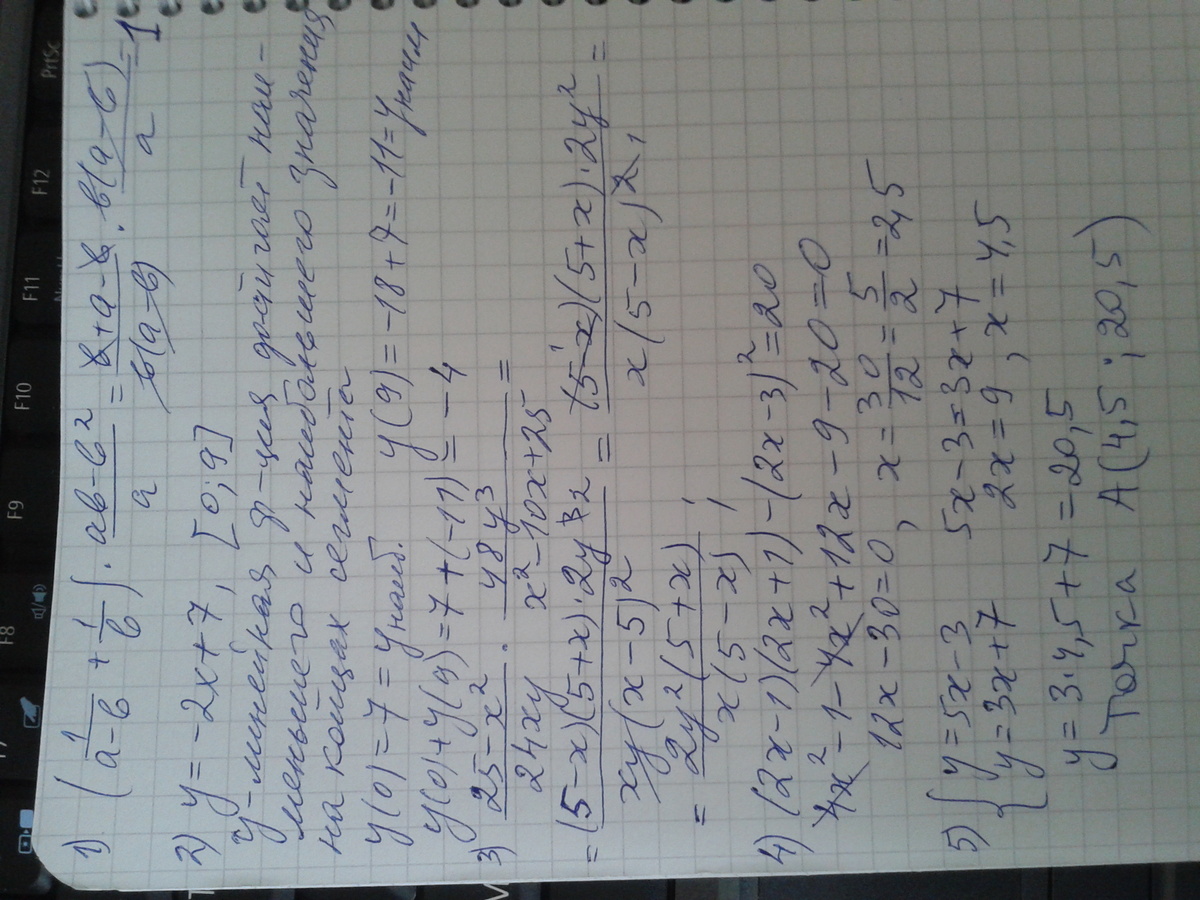 1) (1/(a-b) + 1/b) · (ab-b²)/a = (b+a-b)/(b(a-b)) · b(a-b)/a = 1
2) y = -2x+7, [0; 9]
y-линейная ф-ция достигает наи-
меньшего и наибольшего значения
на концах сегмента
y(0) = 7 = y наиб. y(9) = -18+7 = -11 = y наим
y(0)+y(9) = 7+(-11) = -4
3) (25-x²)/(24xy) · (48y³)/(x²-10x+25) =
= ((5-x)(5+x)·2y³ ²)/(xy(x-5)²) = ((5-x)¹(5+x)·2y²)/(x(5-x)² ¹) =
= (2y²(5+x))/(x(5-x))
4) (2x-1)(2x+1)-(2x-3)² = 20
4x²-1-4x²+12x-9-20=0
12x-30=0, x = 30/12 = 5/2 = 2,5
5) { y=5x-3 5x-3=3x+7
y=3x+7 2x=9, x=4,5
y = 3·4,5+7 = 20,5
Точка A(4,5; 20,5)
PrtSc
F12
F11
F10
F9
F8